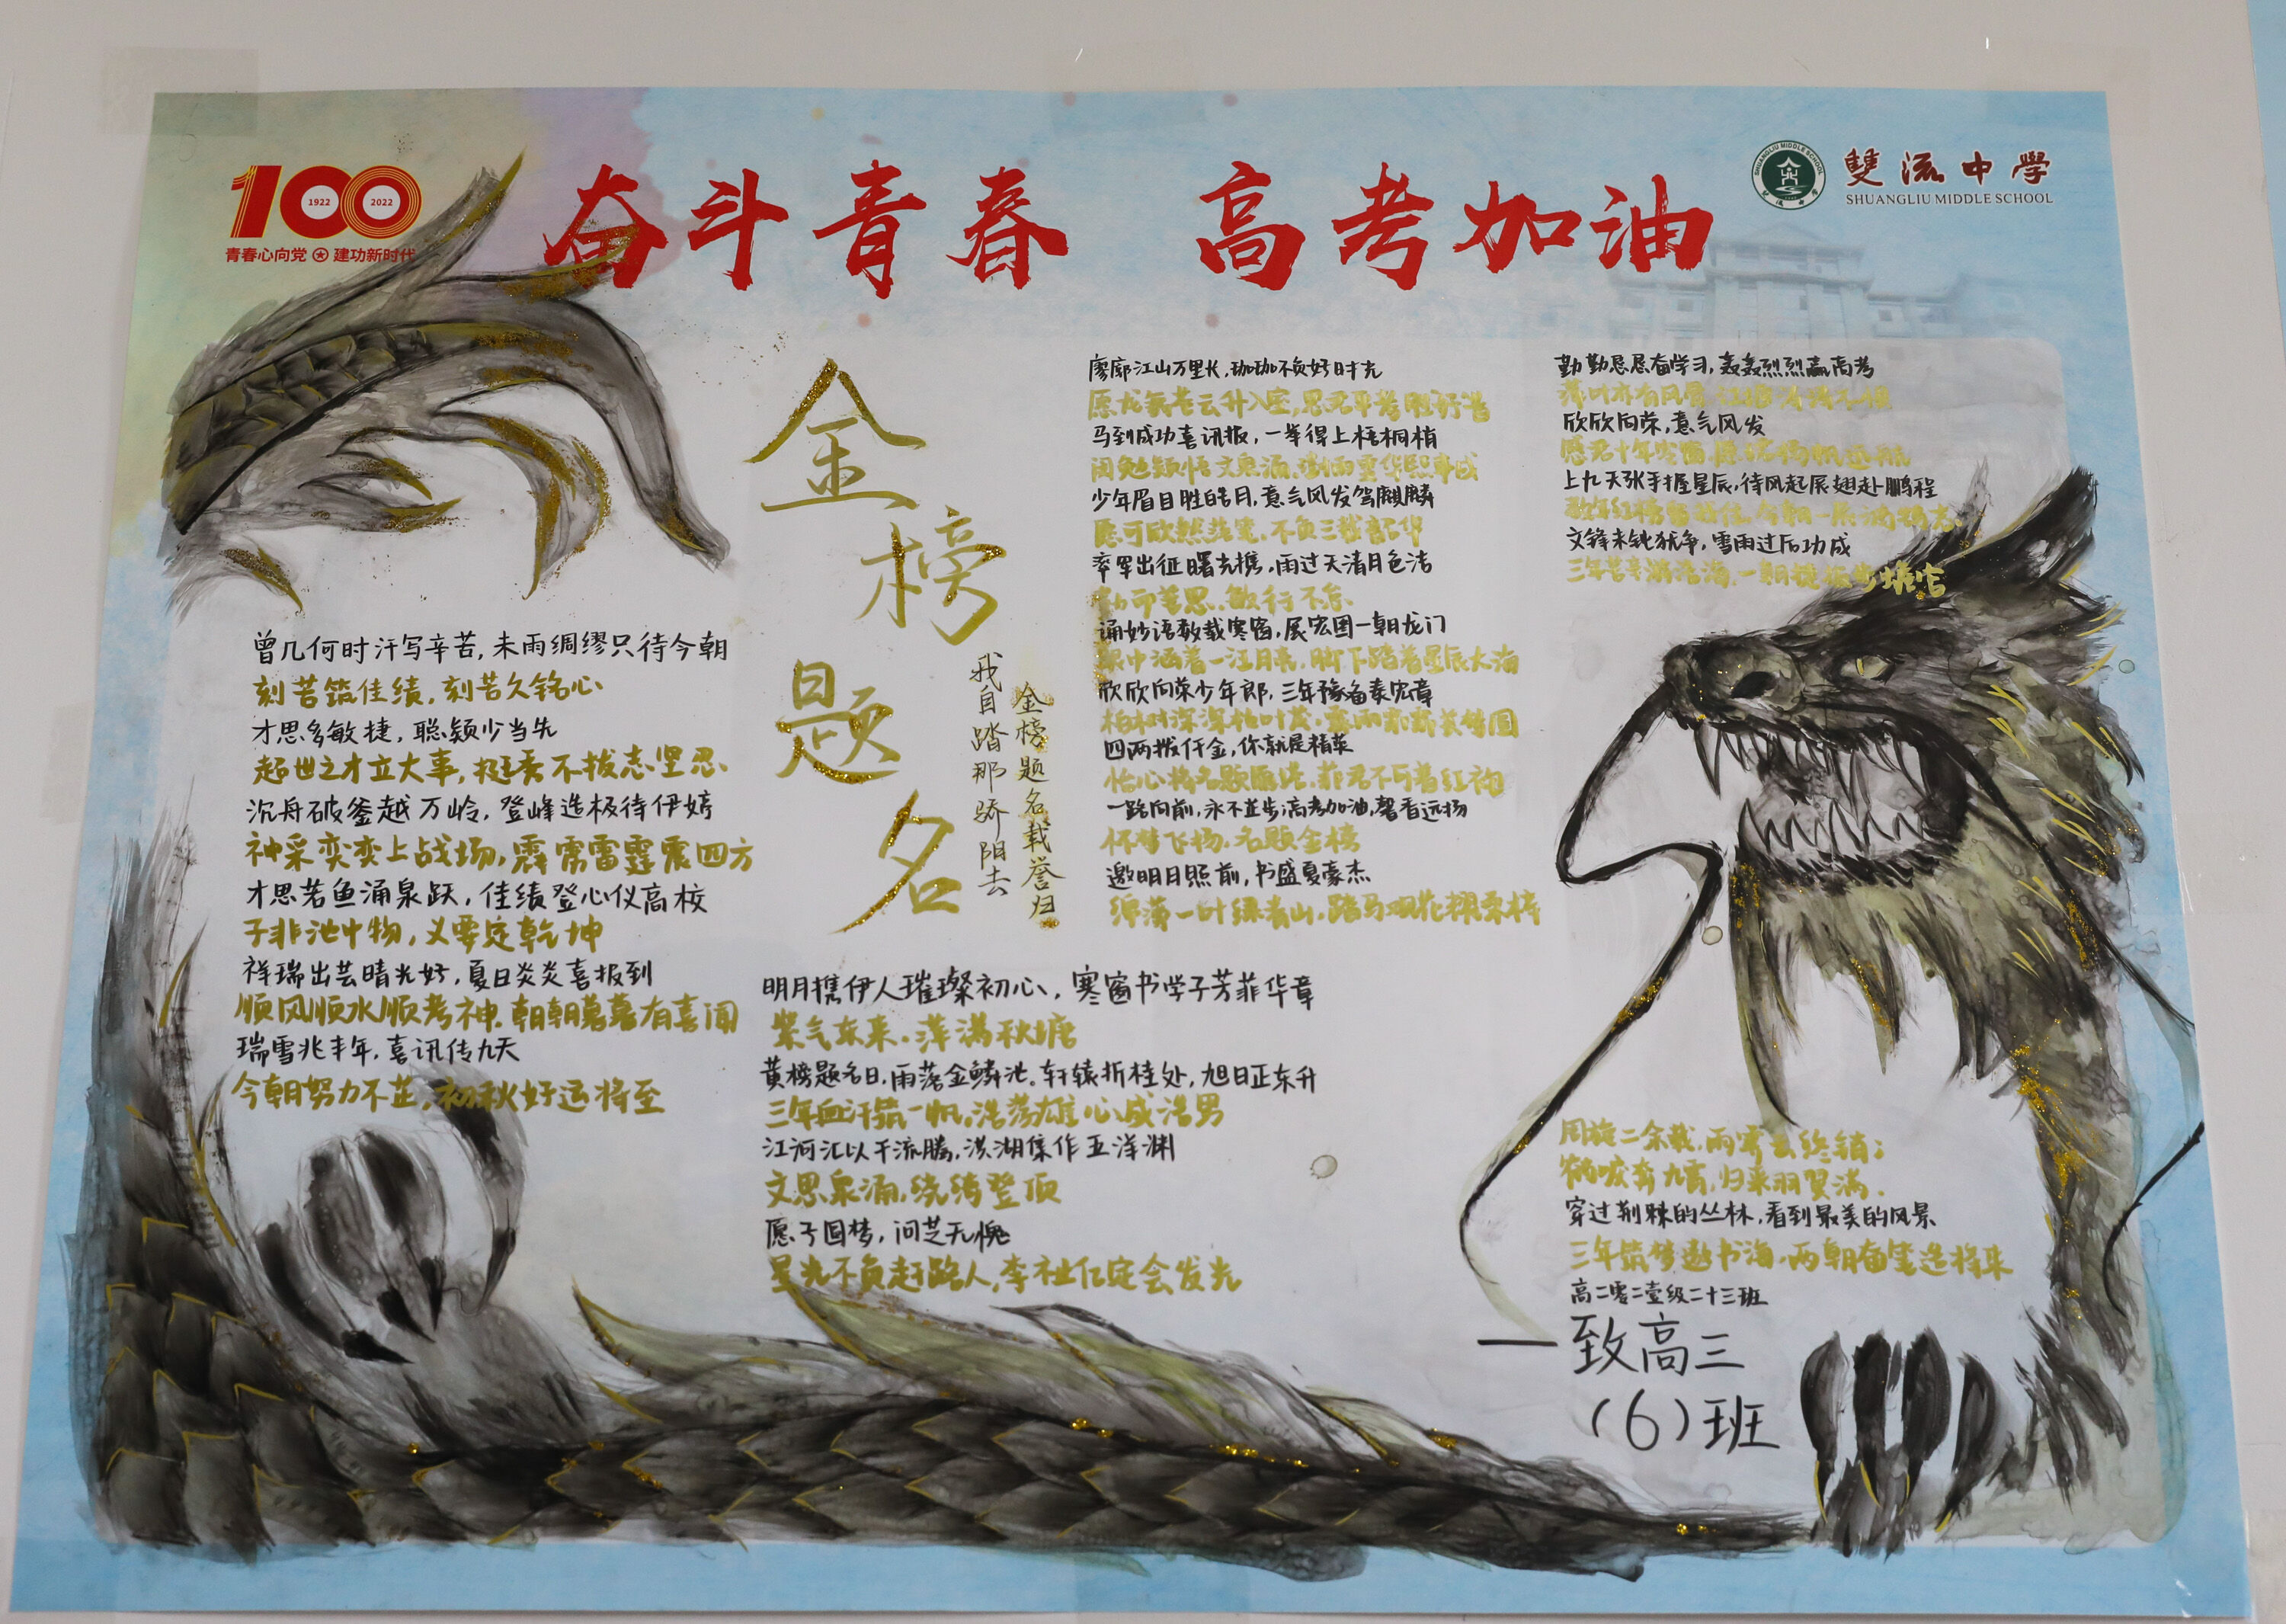 100
1922
2022
青春心向党 建功新时代
奋斗青春 高考加油
SHUANGLIU MIDDLE SCHOOL
雙流中學
SHUANGLIU MIDDLE SCHOOL
金榜题名
我自踏那骄阳去
金榜题名载誉归
曾几何时汗写辛苦,未雨绸缪只待今朝
刻苦筑佳绩,刻苦久铭心
才思多敏捷,聪颖少当先
超世之才立大事,挺秀不拔志坚忍
沉舟破釜越万岭,登峰造极待伊婷
神采奕奕上战场,霹雳雷霆震四方
才思若鱼涌泉跃,佳绩登心仪高校
子非池中物,义要定乾坤
祥瑞出芸晴光好,夏日炎炎喜报到
顺风顺水顺考神,朝朝暮暮有喜闻
瑞雪兆丰年,喜讯传九天
今朝努力不芷,初秋好运将至
明月携伊人璀璨初心,寒窗书学子芳菲华章
紫气东来,萍满秋塘
黄榜题名日,雨落金鳞池,轩辕折桂处,旭日正东升
三年血汗筑一帆,浩荡雄心成浩男
江河汇以千流腾,洪湖集作亚洋渊
文思泉涌,绕绮登顶
愿子圆梦,问芝无愧
星光不负赶路人,李祉亿定会发光
廖廓江山万里长,珈珈不负好时光
马到成功喜讯报,一举得上梧桐梢
少年眉目胜皓月,意气风发驾麒麟
愿可欣然落笔,不负三载韶华
率罕出征曙光携,雨过天清月色洁
诵妙语数载寒窗,展宏图一朝龙门
眼中涵着一汪月亮,脚下踏着星辰大海
欣欣向荣少年郎,三年豫备奏宏章
四两拨仟金,你就是精英
怡心将名题雁塔,菲君不可着红袍
一路向前,永不芷步,高考加油,馨香远扬
怀梦飞扬,名题金榜
邀明月照前,书盛夏豪杰
勤勤恳恳奋学习,轰轰烈烈赢高考
欣欣向荣,意气风发
上九天张手握星辰,待风起展翅赴鹏程
文锋未钝犹争,雪雨过后功成
周旋二余载,雨霁云终销;
归来羽翼满.
穿过荆棘的丛林,看到最美的风景
三年筑梦邀书海,两朝奋笔造将来
高二零二壹级二十三班
一致高三
(6)班